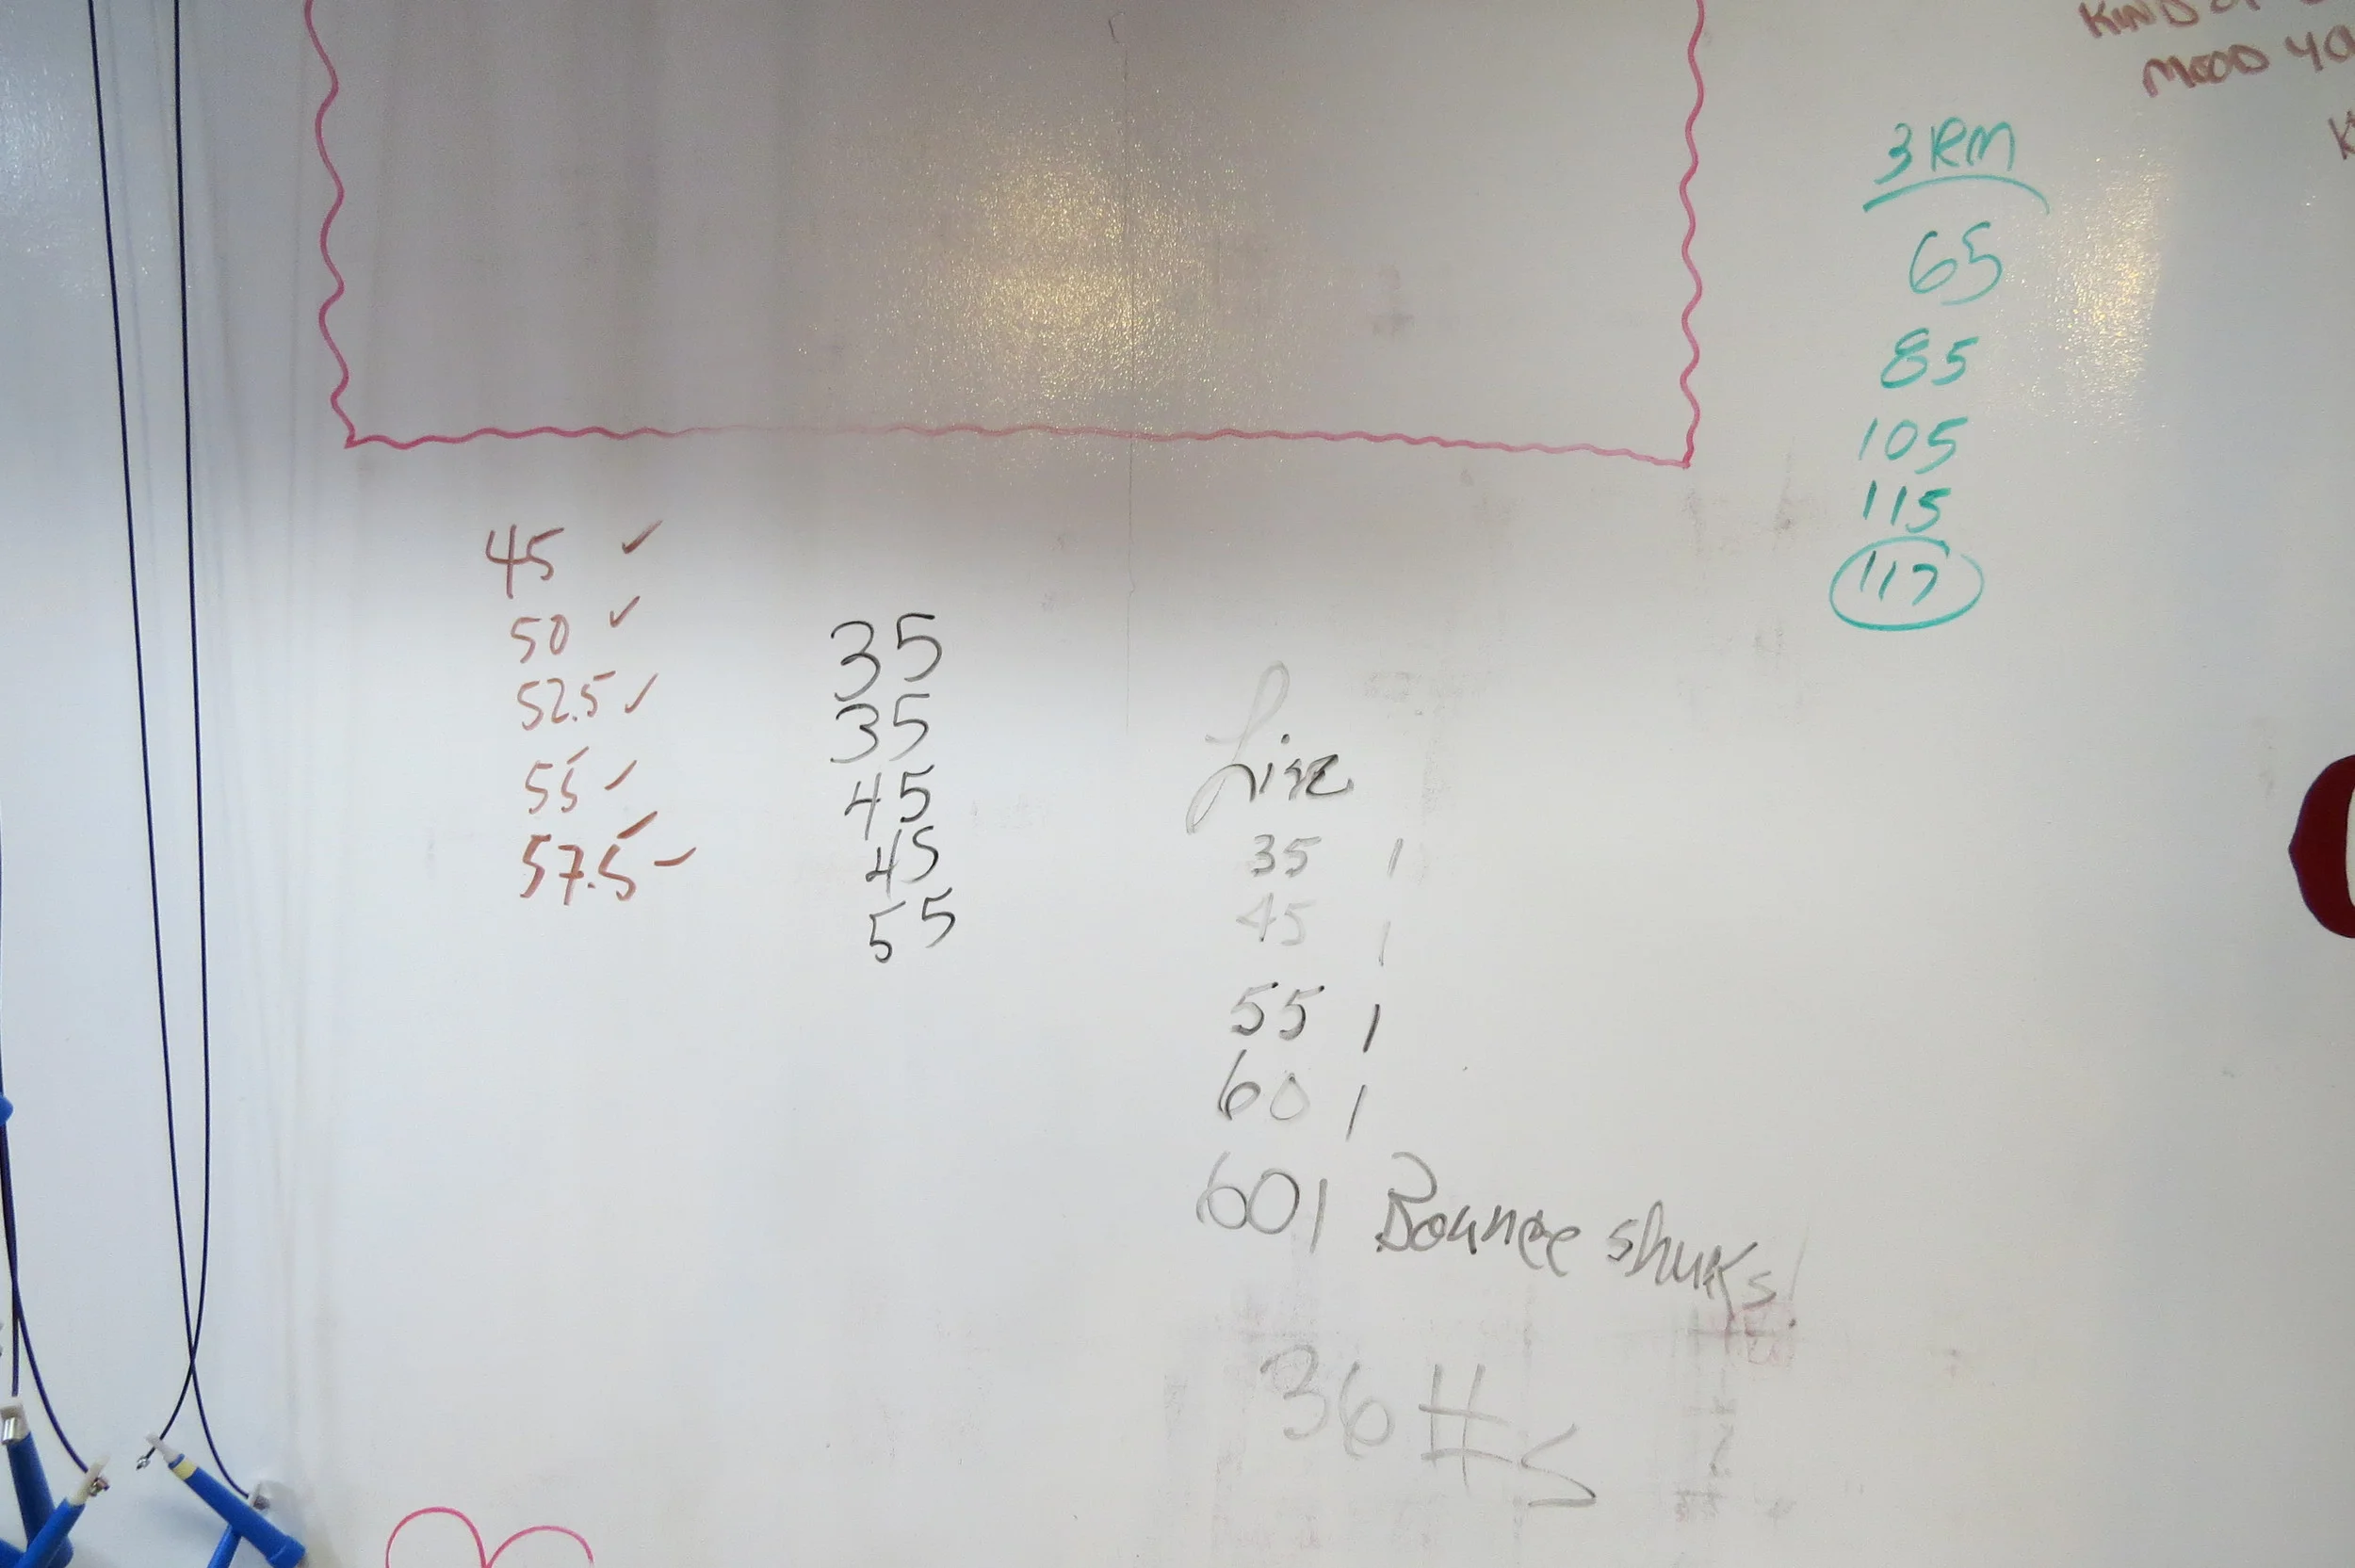 KIND OF
MOOD YO
3 RM
65
85
105
115
117
45 ✓
50 ✓
52.5 ✓
55 ✓
57.5 ✓
35
35
45
45
55
35 1
45 1
55 1
60 1
60 1 Bounce
36 #s